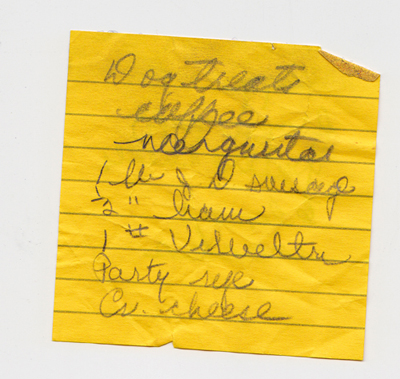 Dog treats
coffee
1 lb J D sausage
½ " ham
1 #
Party rye
Cr. cheese